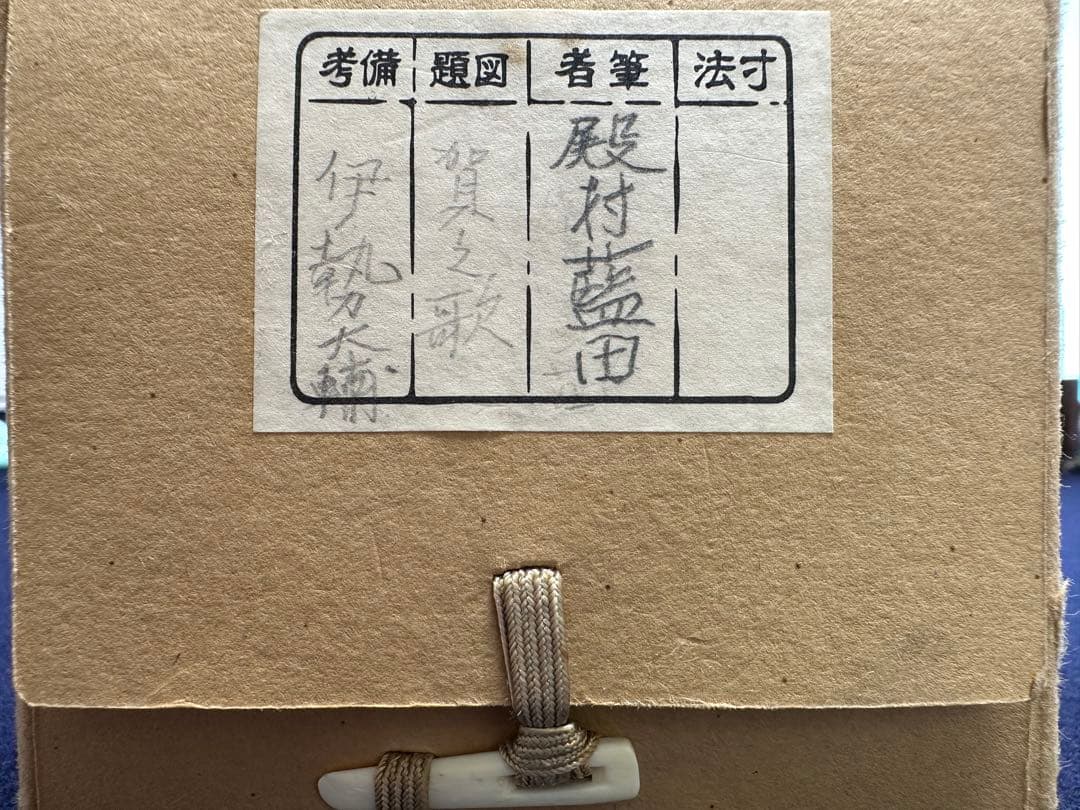 寸法
筆者
殿村藍田
図題
賀之歌
備考
伊勢大輔